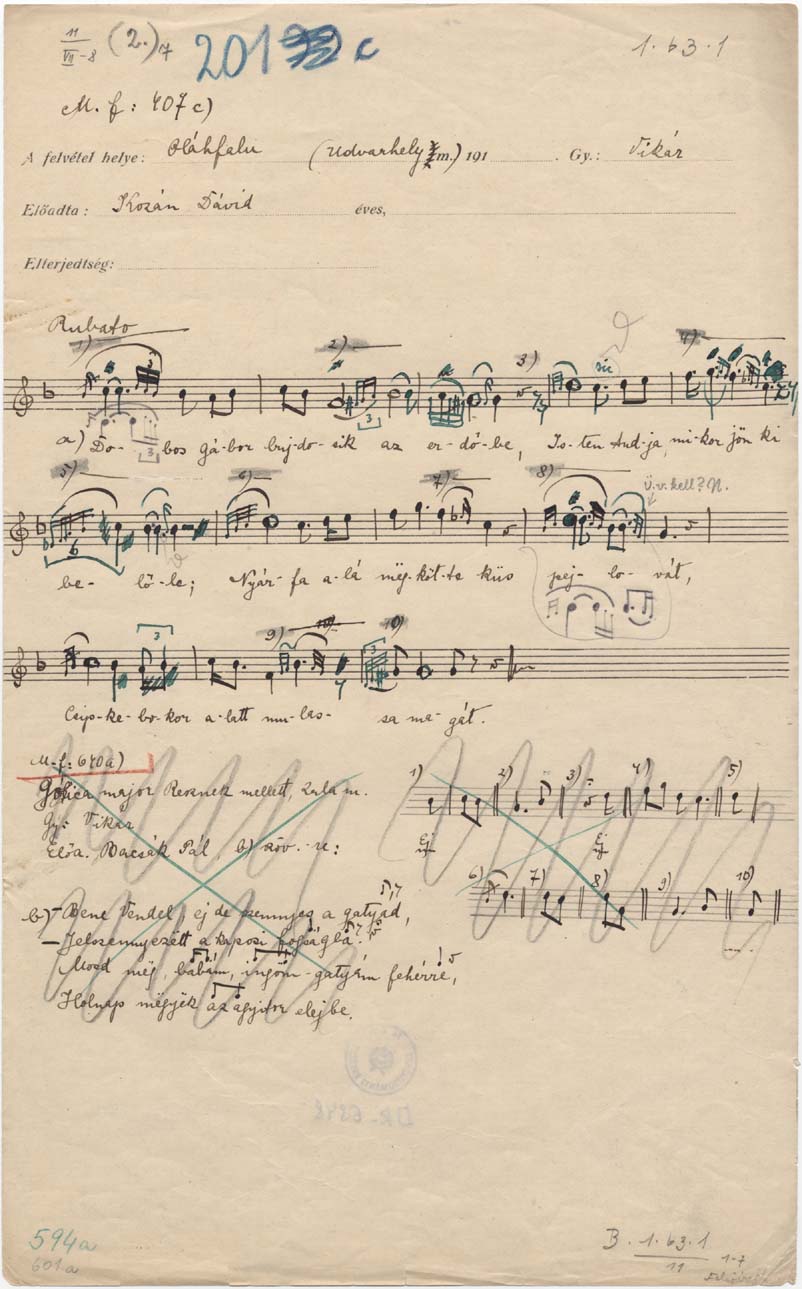 11
VII-8 (2.) 7 201 c 1.63.1
M. f: 407c)
A felvétel helye: Oláhfalu (Udvarhely m.) 191 . Gy.: Vikár
Előadta: Kozán Dávid éves,
Elterjedtség:
Rubato
1) 2) 3) 4)
3 3
a) Do- bos gá-bor buj-do-sik az er-dő-be, Is-ten tud-ja, mi-kor jön ki
3
5) 6) 7) 8) Ü.v. kell? N.
6
be- lő-le; Nyár-fa a-lá mëg-köt-te kiis pej- lo- vát,
3 9) 10) 10)
Csip-ke-bo-kor a-latt mu-las- sa ma-gát.
M.f: 640a)
Gózica major Resznek mellett, Zala m.
Gy: Vikár
Előa. Bacsák Pál, b) szöv.-re:
1) 2) 3) 4) 5)
Ej Ej
6) 7) 8) 9) 10)
b) - Bene Vendel, ej de szennyes a gatyád,
- Jelszennyezëtt a kaposi fogságba.
Mosd még, babám, ingöm-gatyám fehérre,
Holnap mëgyëk az elejbe.
DR. 6248
594a
601a
B. 1.63.1
11 1-7